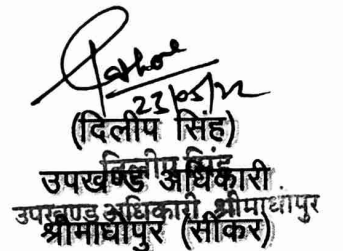 Rathore
23/05/22
(दिलीप सिंह)
दिलीप सिंह
उपखण्ड अधिकारी
उपखण्ड अधिकारी श्रीमाधोपुर
श्रीमाधोपुर (सीकर)